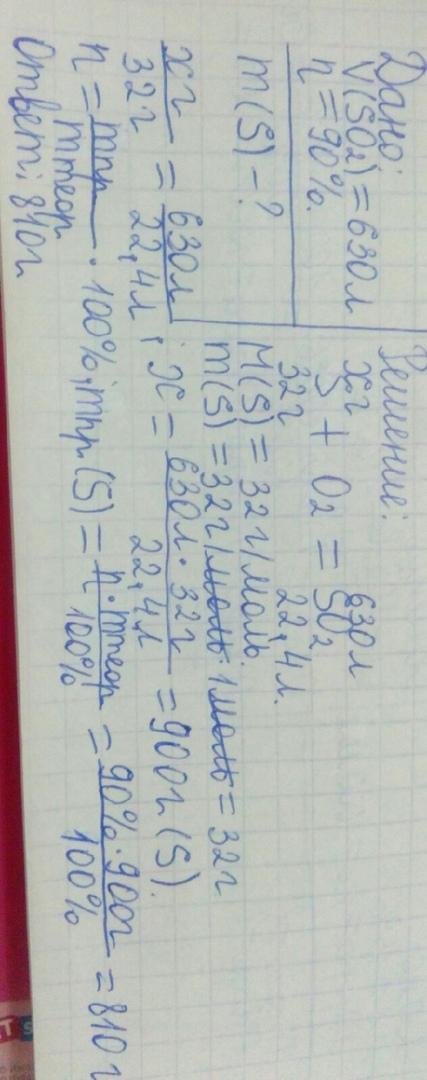 Дано:
V(SO2) = 630л
η = 90%.
m(S) – ?
Решение:
xг 630л
S + O2 = SO2
32г 22,4л.
M(S) = 32г/моль.
m(S) = 32г/моль · 1моль = 32г
xг/32г = 630л/22,4л; x = 630л · 32г/22,4л = 900г(S).
η = mпр/mтеор · 100%; mпр(S) = η · mтеор/100% = 90% · 900г/100% = 810г
Ответ: 810г